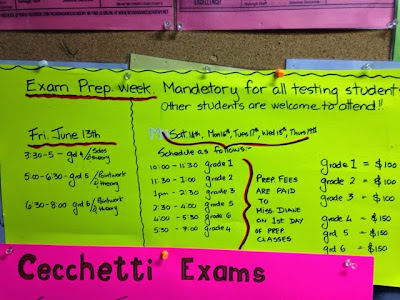 Exam Prep Week. Mandetory for all testing students
Other students are welcome to attend!!
Fri. June 13th
3:30-5 - grd 4 / Solos & theory
5:00-6:30 - grd 5 / Pointwork & theory
6:30-8:00 grd 6 / Pointwork & theory
Sat. 14th, Mon 16th, Tues 17th, Wed 18th, Thurs 19th
Schedule as follows:-
10:00 - 11:30 grade 1
11:30 - 1:00 grade 2
1pm - 2:30 grade 3
2:30 - 4:00 grade 5
4:00 - 5:30 grade 6
5:30 - 7:00 grade 4
PREP FEES
ARE PAID
TO
MISS DIANE
ON 1ST DAY
OF PREP
CLASSES
grade 1 = $100
grade 2 = $100
grade 3 = $100
grade 4 = $150
grd 5 = $150
grd 6 = $150
Cecchetti Exams